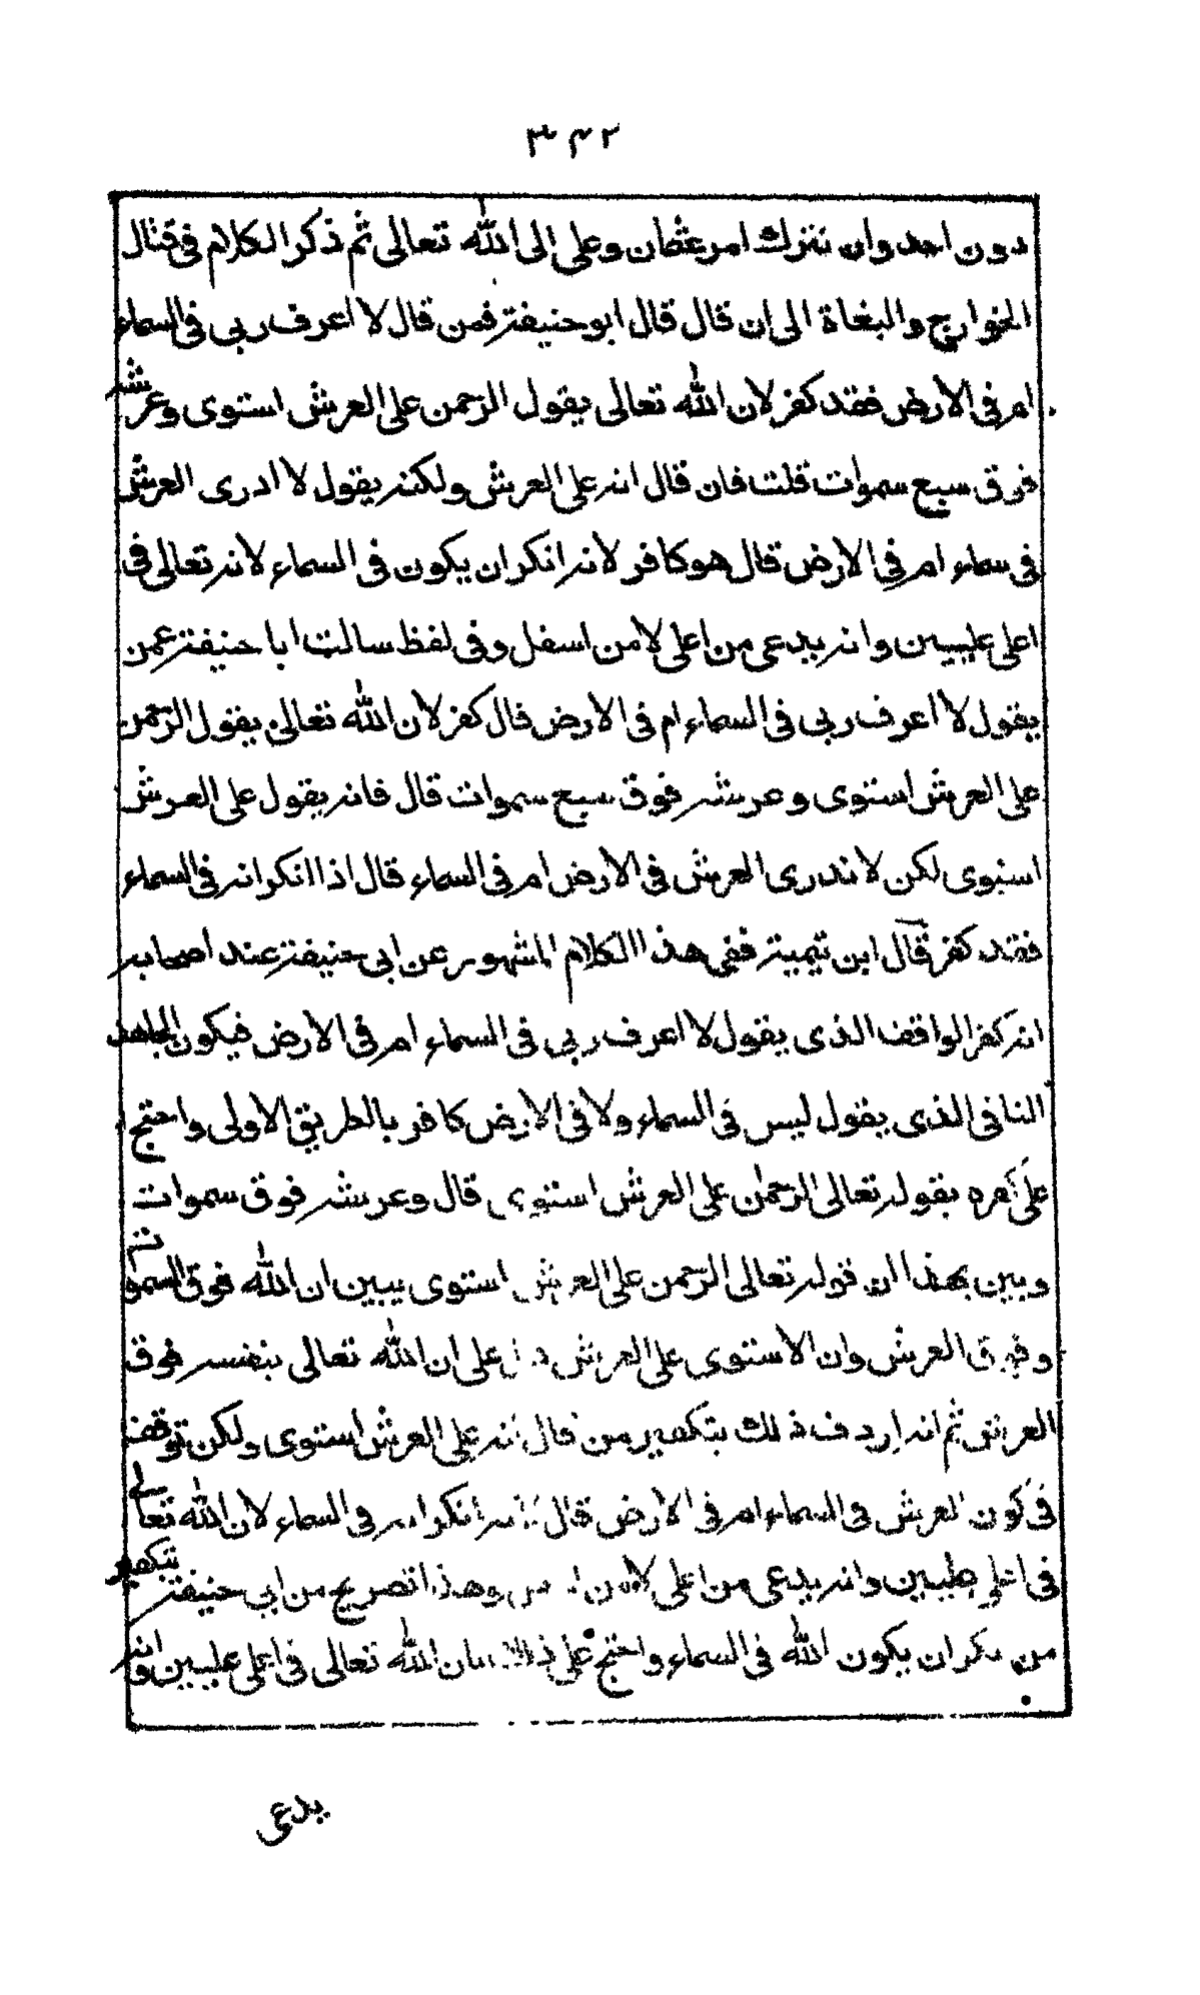 ٣٤٢
دون احد وان نترك امر عثمان وعلي الى الله تعالى ثم ذكر الكلام في قتال
الخوارج والبغاة الى ان قال قال ابو حنيفة فمن قال لا اعرف ربي في السماء
ام في الارض فقد كفر لان الله تعالى يقول الرحمن على العرش استوى وعرشه
فوق سبع سموات قلت فان قال انه على العرش ولكنه يقول لا ادرى العرش
في سماء ام في الارض قال هو كافر لانه انكر ان يكون في السماء لانه تعالى في
اعلى عليين وانه يدعى من اعلى لا من اسفل وفي لفظ سالت ابا حنيفة عمن
يقول لا اعرف ربي في السماء ام في الارض قال كفر لان الله تعالى يقول الرحمن
على العرش استوى وعرشه فوق سبع سموات قال فانه يقول على العرش
استوى لكن لا ندرى العرش في الارض ام في السماء قال اذا انكر انه في السماء
فقد كفر قال ابن تيمية ففي هذا الكلام المشهور عن ابي حنيفة عند اصحابه
انه كفر الواقف الذى يقول لا اعرف ربي في السماء ام في الارض فيكون الجاهد
النافي الذى يقول ليس في السماء ولا في الارض كافر بالطريق الاولى واحتج
على كفره بقوله تعالى الرحمان على العرش استوى قال وعرشه فوق سموات
وبين بهذا ان قوله تعالى الرحمن على العرش استوى يبين ان الله فوق السموات
وفوق العرش وان الاستوى على العرش دل على ان الله تعالى بنفسه فوق
العرش ثم انه اردف ذلك بتكفير من قال انه على العرش استوى ولكن توقف
في كون العرش في السماء ام في الارض قال لانه انكر انه في السماء لان الله تعالى
في اعلى عليين وانه يدعى من اعلى لا من وهذا تصريح من ابي حنيفة بتكفير
من انكر ان يكون الله في السماء واحتج على ذلك بان الله تعالى في اعلى عليين وانه
يدعى